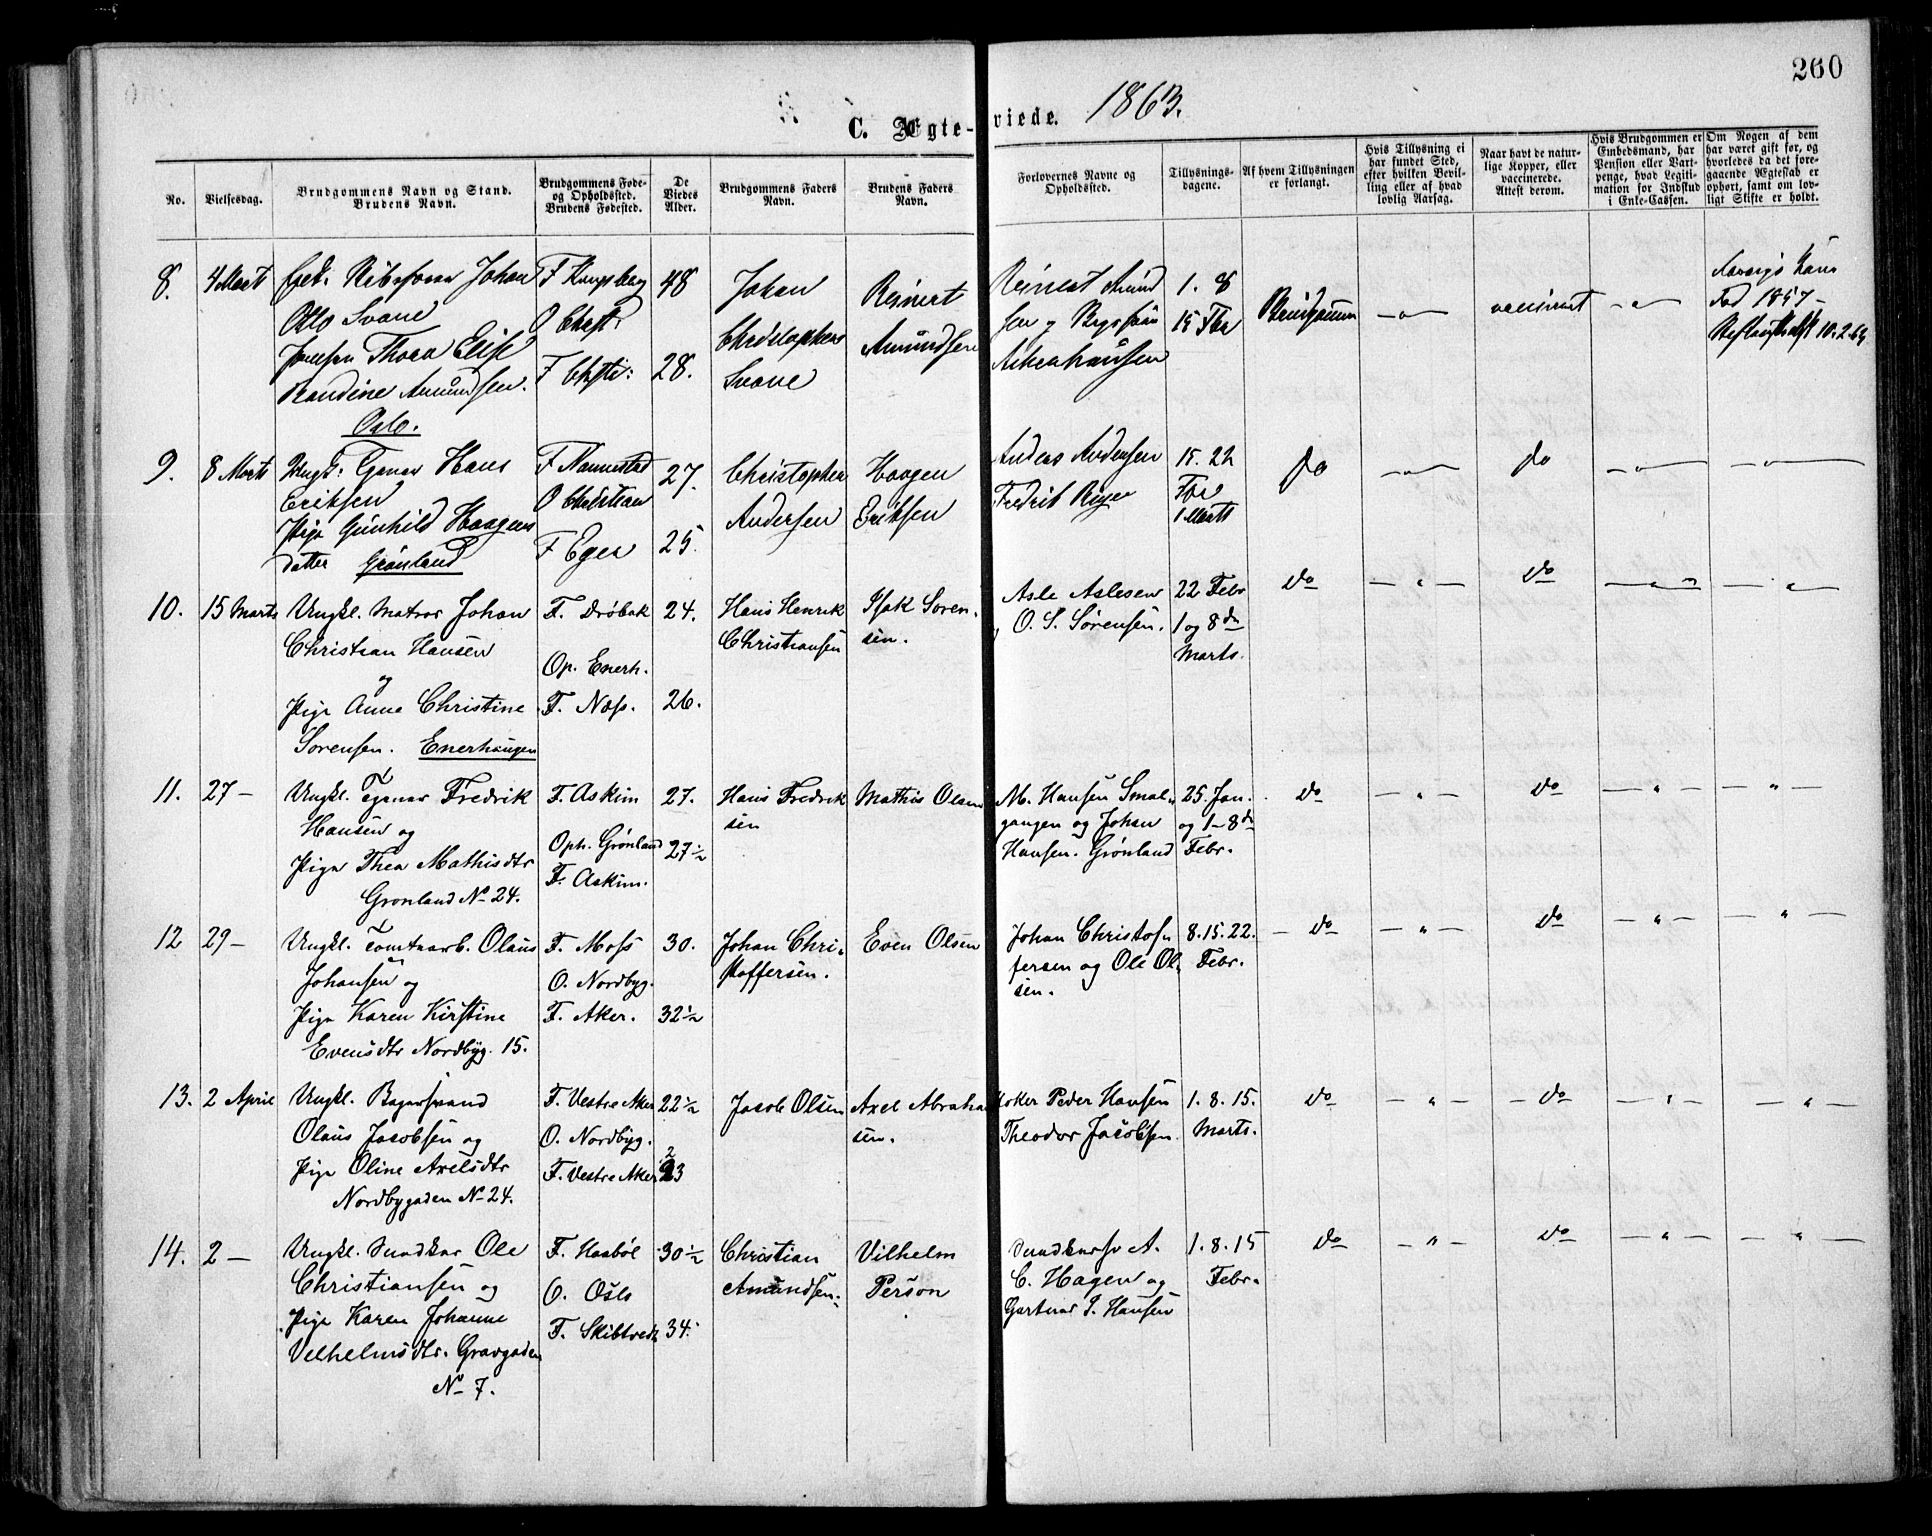 260
C. Ægte-viede. 1863.
No.
Vielsesdag.
Brudgommens Navn og Stand.
Brudens Navn.
Brudgommens Føde-
og Opholdssted.
Brudens Fødested.
De
Viedes
Alder.
Brudgommens Faders
Navn.
Brudens Faders
Navn.
Forlovernes Navne og
Opholdssted.
Tillysnings-
dagene.
Af hvem Tillysningen
er forlangt.
Hvis Tillysning ei
har fundet Sted,
efter hvilken Bevil-
ling eller af hvad
lovlig Aarsag.
Naar havt de natur-
lige Kopper, eller
vaccinerede.
Attest derom.
Hvis Brudgommen er
Embedsmand, har
Pension eller Vart-
penge, hvad Legiti-
mation for Indskud
i Enke-Cassen.
Om Nogen af dem
har været gift før, og
hvorledes da det fore-
gaaende Ægteskab er
ophørt, samt om lov-
ligt Skifte er holdt.
8. 4 Marts
Johan
Otto Svane
Thora Elise
Randine Amundsen.
Oslo.
F Kongsberg
O Christ
F Chrsti:
48
28.
Johan
Christophers
Svane
Reinert
Amundsen
Reinert Amund
sen og
1. 8
15 Fbr
Brudgommen
— " —
vaccineret
— " —
Død 1857 —
10.2.63
9. 8 Marts
Ungk: Hans
Eriksen
Pige Gunhild Haagens
datter Grønland
F Nannestad
O Christian
F Eger
27.
25.
Christopher
Andersen
Haagen
Eriksen
Anders Andersen
Fredrik
15. 22
Fbr
1 Marts
do
— " —
do
— " —
— " —
10. 15 Marts
Ungkl. Matros Johan
Christian Hansen
og
Pige Anne Christine
Sørensen. Enerhaugen
F. Drøbak
Op. Enerh.
F. Næs.
24.
26.
Hans Henrik
Christiansen
Isak Soren-
sen.
Asle Aslesen
O. S. Sørensen.
22 Febr
1 og 8de
Marts.
do
— " —
do
— " —
— " —
11. 27 —
Ungkl. Fredrik
Hansen og
Pige Thea Mathisdtr
Grønland No 24.
F. Askim
Oph. Grønland
F. Askim.
27.
27½
Hans Fredrik
sen
Mathis Olsen
M. Hansen Smal-
gangen og Johan
Hansen. Grønland
25. Jan.
og 1-8de
Febr.
do
— " —
do
— " —
— " —
12 29 —
Ungkl. Tomtearb. Olaus
Johansen og
Pige Karen Kirstine
Evensdtr Nordbyg. 15.
F. Moss
O. Nordbyg.
F. Aker.
30.
32½
Johan Chri-
stoffersen.
Even Olsen
Johan Christof-
fersen og Ole Ol-
sen.
8. 15. 22.
Febr.
— do
— " —
do
— " —
— " —
13. 2 April
Ungkl. Bagersvend
Olaus Jacobsen og
Pige Oline Axelsdtr
Nordbygaden No 24.
F. Vestre Aker
O. Nordbyg.
F. Vestre Aker
22½
23
Jacob Olsen
Axel Abraham
sen.
Peder Hansen
Theodor Jacobsen.
1. 8. 15.
Marts.
do
— " —
— do
— " —
— " —
14. 2 —
Ungkl. Ole
Christiansen og
Pige Karen Johanne
Velhelmsdtr. Gravgaden
No 7.
F. Haabøl
O. Oslo
F. Skibtvedt
30½
34.
Christian
Amundsen.
Vilhelm
Person
A.
C. Hagen og
Gartner P. Hansen
1. 8. 15
Febr.
do
— " —
do
— " —
— " —